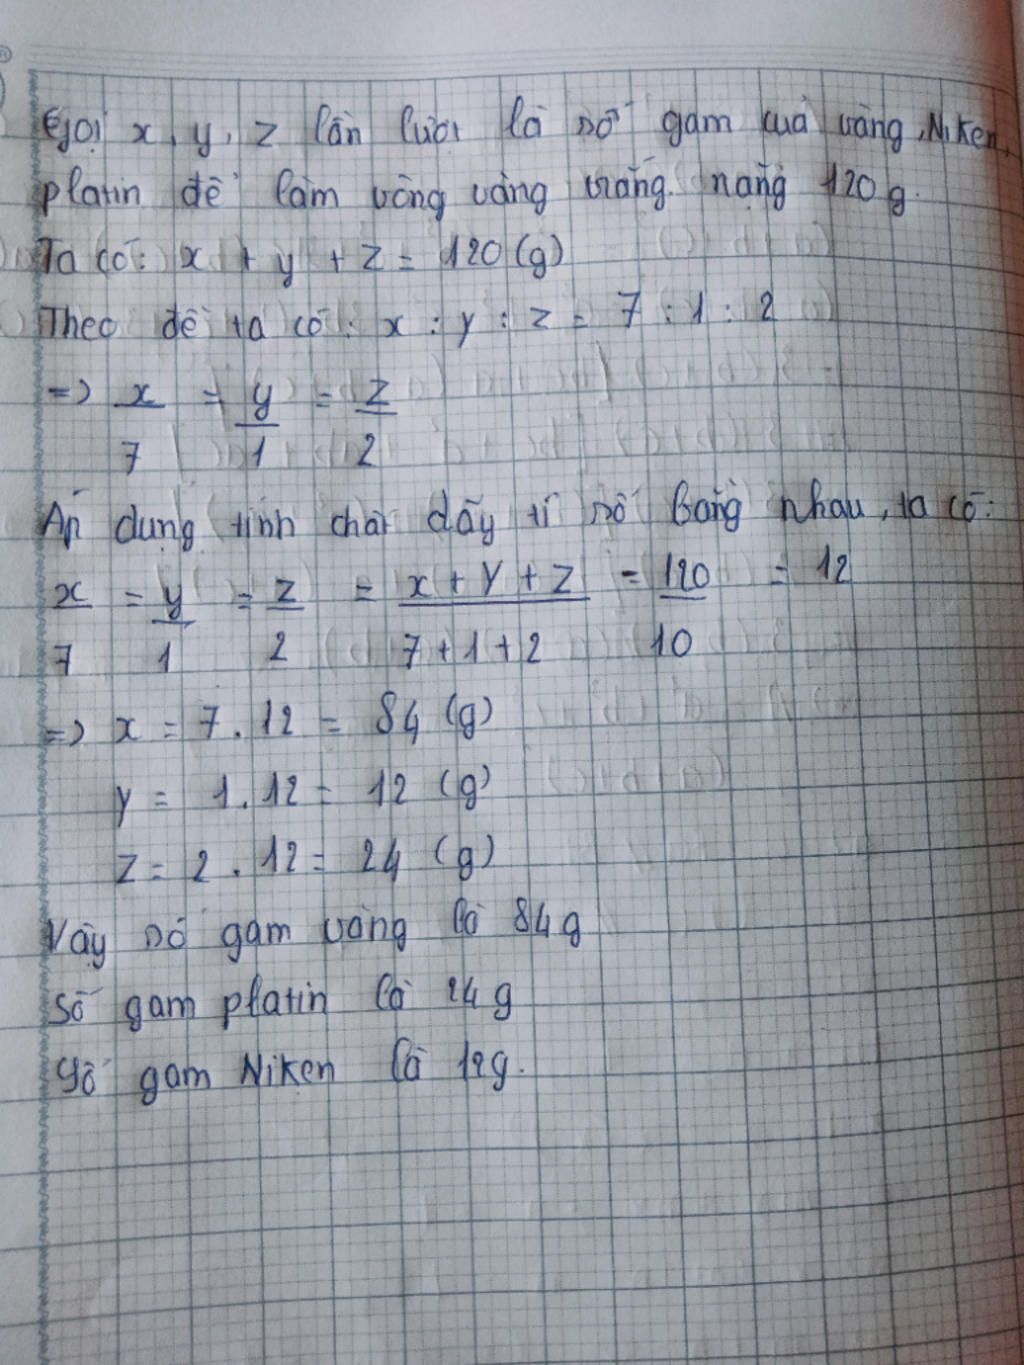 Gọi x, y, z lần lượt là số gam của vàng, Niken,
platin để làm vòng vàng trắng nặng 120g.
Ta có: x + y + z = 120 (g)
Theo đề ta có: x : y : z = 7 : 1 : 2
=> x/7 = y/1 = z/2
Áp dụng tính chất dãy tỉ số bằng nhau, ta có:
x/7 = y/1 = z/2 = (x + y + z)/(7 + 1 + 2) = 120/10 = 12
=> x = 7 . 12 = 84 (g)
y = 1 . 12 = 12 (g)
z = 2 . 12 = 24 (g)
Vậy số gam vàng là 84g
Số gam platin là 24g
Số gam Niken là 12g.